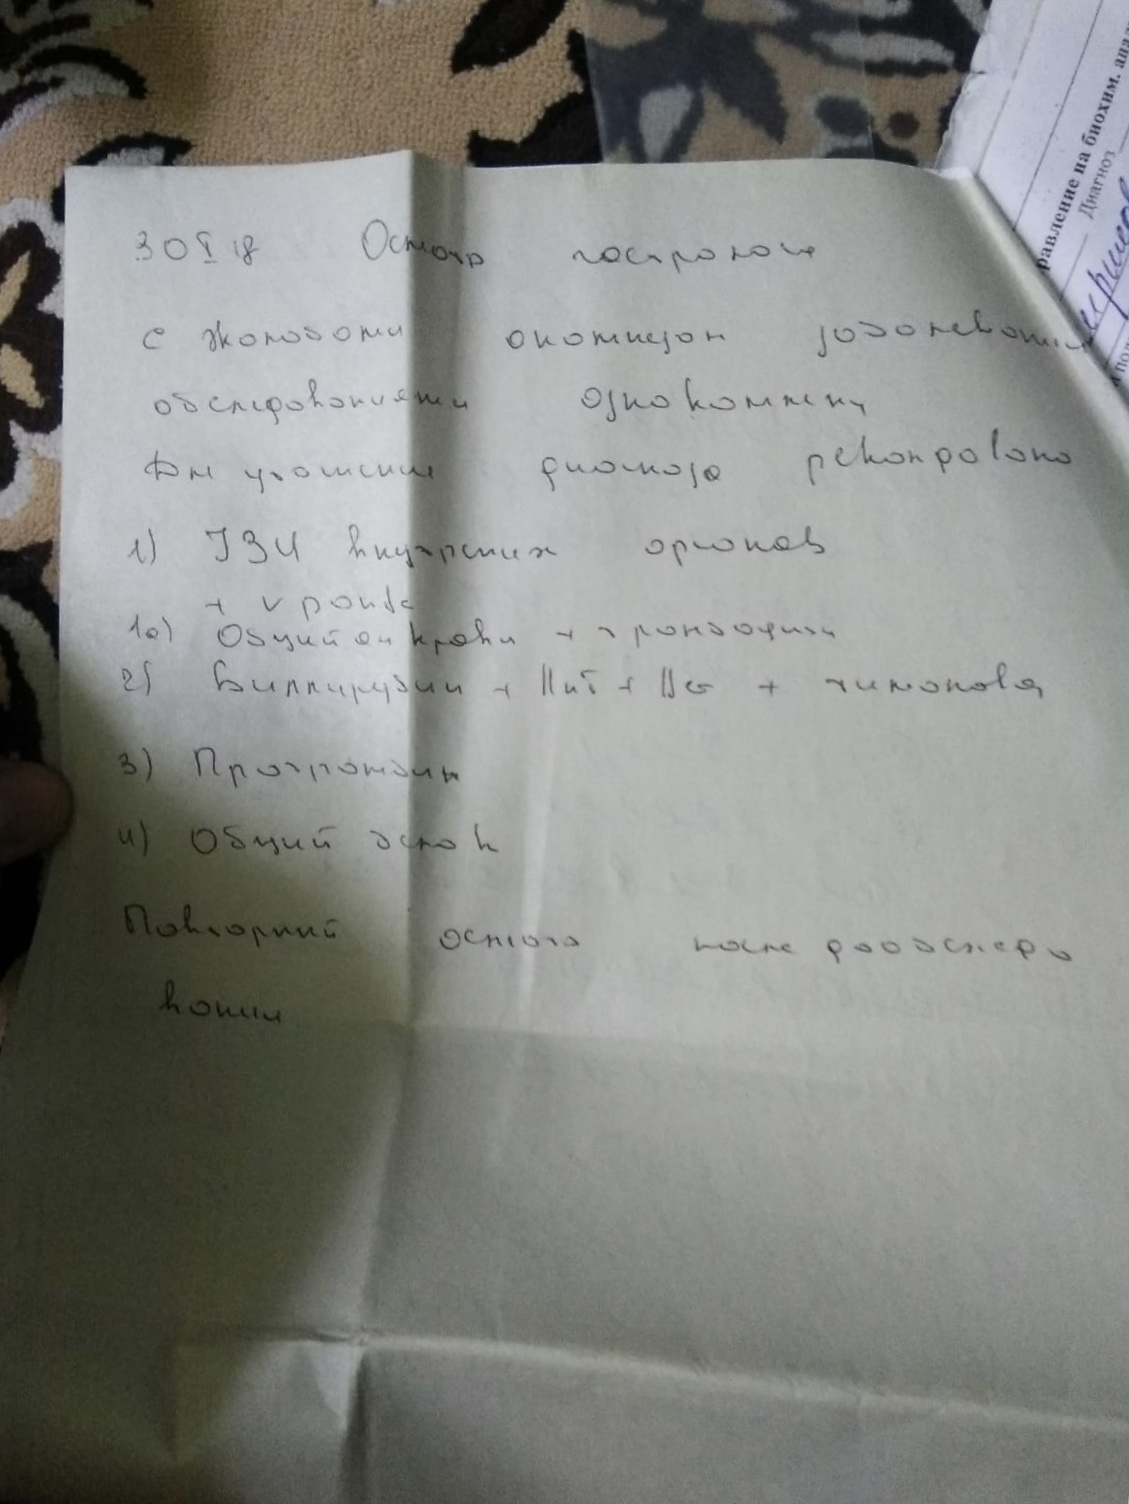 30 I 18 Осмотр гастролога
с жалобами анамнезом заболевания
обследованиями ознакомлен
Для уточнения диагноза рекомендовано
1) УЗИ внутренних органов
+ v portae
1а) Общий ан крови + тромбоциты
2) Биллирубин + АлТ + АсТ + тимоловая
3) Протромбин
4) Общий белок
Повторный осмотр после дообследо
вания
равление на биохим. ана
Диагноз